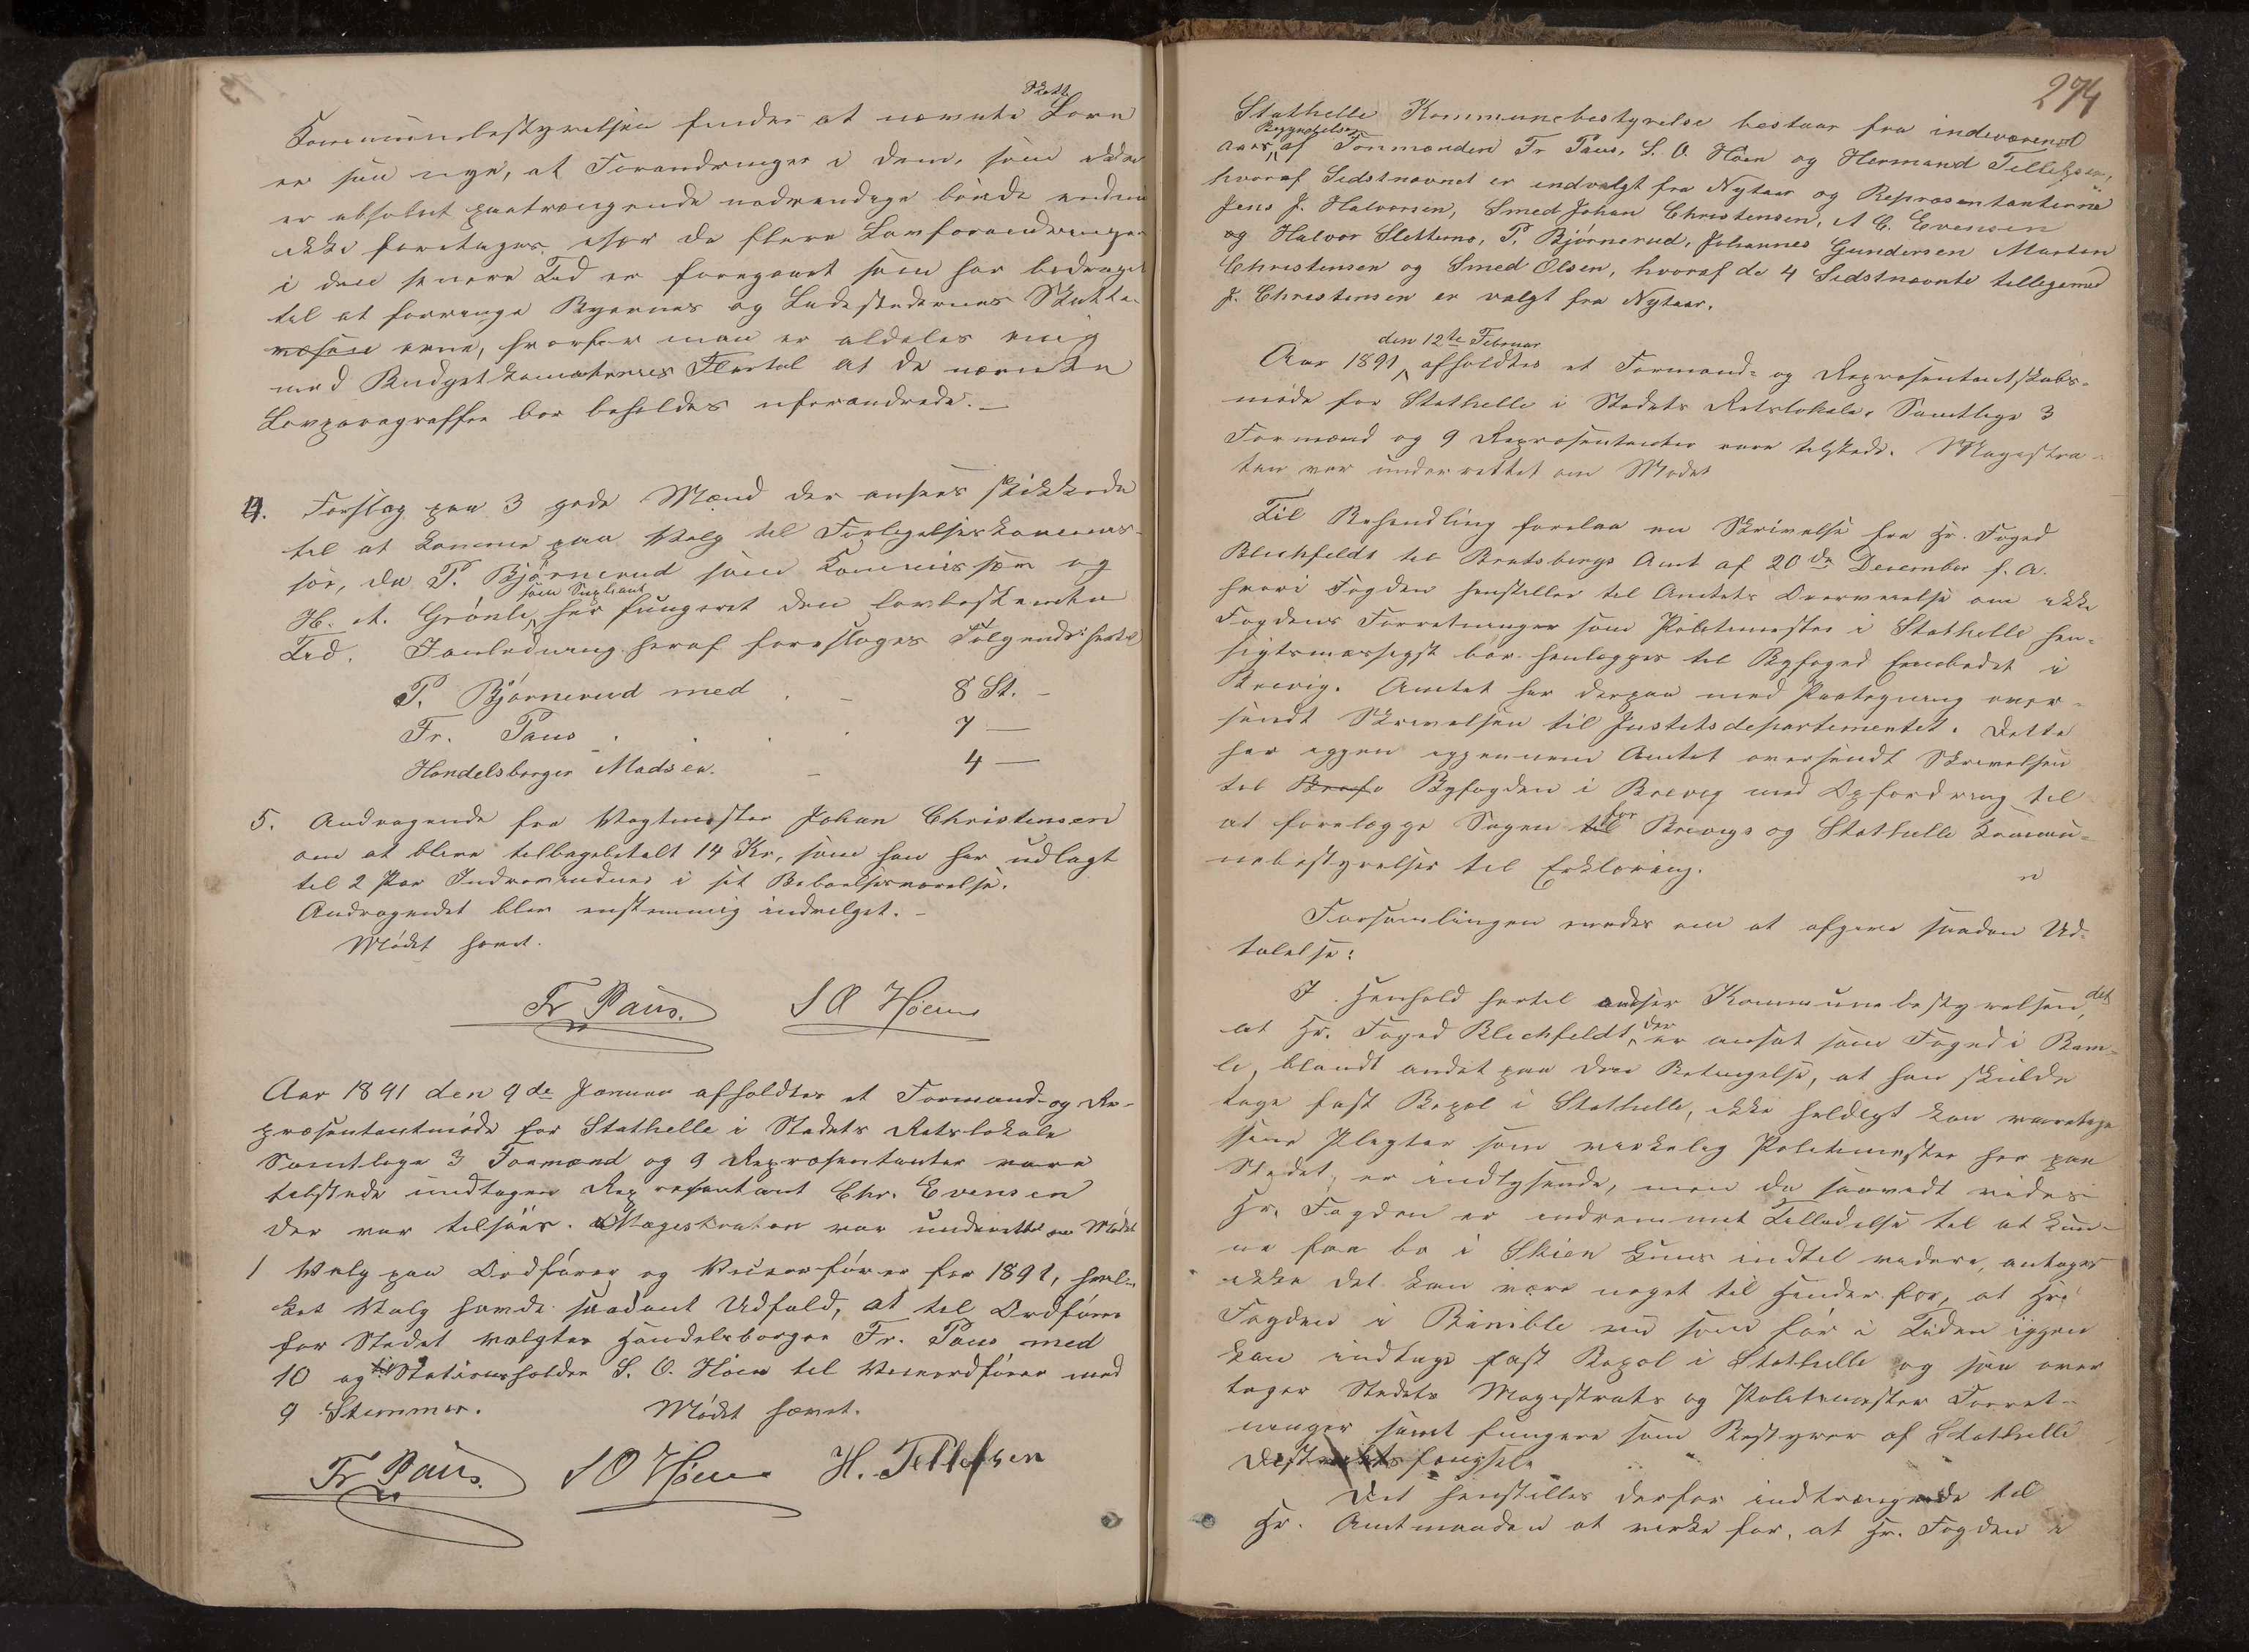 Skatte
Kommunebestyrelsen finder at nævnte Love
er saa nye, at Forandringer i dem, som ikke
er absolut paatrængende nødvendige burde endnu
ikke foretages, især da flere Lovforandringer
i den senere Tid er foregaaet som har bidraget
til at forringe Byernes og Ladestedernes Skatte-
væsen evne, hvorfor man er aldeles enig
med Budgetkomiteens Flertal at de nævnte
Lovparagraffer bør beholdes uforandrede. —
4. Forslag paa 3 gode Mænd der ansees skikkede
til at komme paa Valg til Forligelseskommis-
sær, da P. Bjørnerud som Kommissær og
som Supleant
H. A. Grønli har fungeret den lovbestemte
Tid. I Anledning heraf foreslages Følgende hertil
P. Bjørnerud med . — 8 St. —
Fr. Paus . . . . 7 —
Handelsborger Madsen. — 4 —
5. Andragende fra Vagtmester Johan Christensen
om at blive tilbagebetalt 14 Kr, som han har udlagt
til 2 Par Indrevinduer i sit Beboelsesværelse.
Andragendet blev enstemmig indvilget. —
Mødet hævet.
Fr Paus. S O Høen
Aar 1891 den 9de Januar afholdtes et Formand- og Re-
præsentantmøde for Stathelle i Stedets Retslokale
Samtlige 3 Formænd og 9 Repræsentanter vare
tilstede undtagen Repræsentant Chr. Evensen
der var tilsøes. Magistraten var underettet om Mødet
1 Valg paa Ordfører og Viceordfører for 1891, hvil-
ket Valg havde saadant Udfald, at til Ordfører
for Stedet valgtes Handelsborger Fr. Paus med
10 og Stationsholder S. O. Høen til Viceordfører med
9 Stemmer. Mødet hævet.
Fr Paus. S O Høen H. Tellefsen
274
Stathelle Kommunebestyrelse bestaar fra indeværend
Begyndelse
aars af Formændene Fr Paus, S. O. Høen og Hermand Tellefsen,
hvoraf Sidstnævnet er indvalgt fra Nytaar og Repræsentanterne
Jens J. Halvorsen, Smed Johan Christensen, A C. Evensen
og Halvor Sletterno, P. Bjørnerud, Johannes Gundersen Marten
Christensen og Smed Olsen, hvoraf de 4 Sidstnævnte tilligemed
J. Christensen er valgt fra Nytaar.
den 12te Februar
Aar 1891 afholdtes et Formand- og Repræsentantskabs-
møde for Stathelle i Stedets Retslokale. Samtlige 3
Formænd og 9 Repræsentanter vare tilstede. Magistra-
ten var underrettet om Mødet
Til Behandling forelaa en Skrivelse fra Hr. Foged
Blichfeldt til Bratsbergs Amt af 20de December f. A.
hvori Fogden henstiller til Amtets Overveielse om ikke
Fogdens Forretninger som Politimester i Stathelle hen-
sigtsmæssigst bør henlægges til Byfoged Embedet i
Brevig. Amtet har derpaa med Paategning over-
sendt Skrivelsen til Justitsdepartementet. Dette
har igjen igjennem Amtet oversendt Skrivelsen
til Byfogden i Brevig med Opfordring til
for
at forelægge Sagen til Brevigs og Stathelle Kommu-
nebestyrelser til Erklæring.
Forsamlingen enedes om at afgive saadan Ud-
talelse:
I Henhold hertil andser Kommunebestyrelsen, det
at Hr. Foged Blichfeldt, der er ansat som Foged i Bam-
le, blandt andet paa den Betingelse, at han skulde
tage fast Bopæl i Stathelle, ikke heldigt kan varetage
sine Pligter som virkelig Politimester her paa
Stedet, er indlysende, men da saavidt vides
Hr. Fogden er indrømmet Tilladelse til at kun-
ne faa bo i Skien kuns indtil videre, antages
ikke det kan være noget til Hinder for, at Hr.
Fogden i Bamble nu som før i Tiden igjen
kan indtage fast Bopæl i Stathelle og saa over
tager Stedets Magistrats og Politimester Forret-
ninger samt fungere som Bestyrer af Stathelle
Distriktsfængsel.
Det henstilles derfor indtrængende til
Hr. Amtmanden at virke for, at Hr. Fogden i